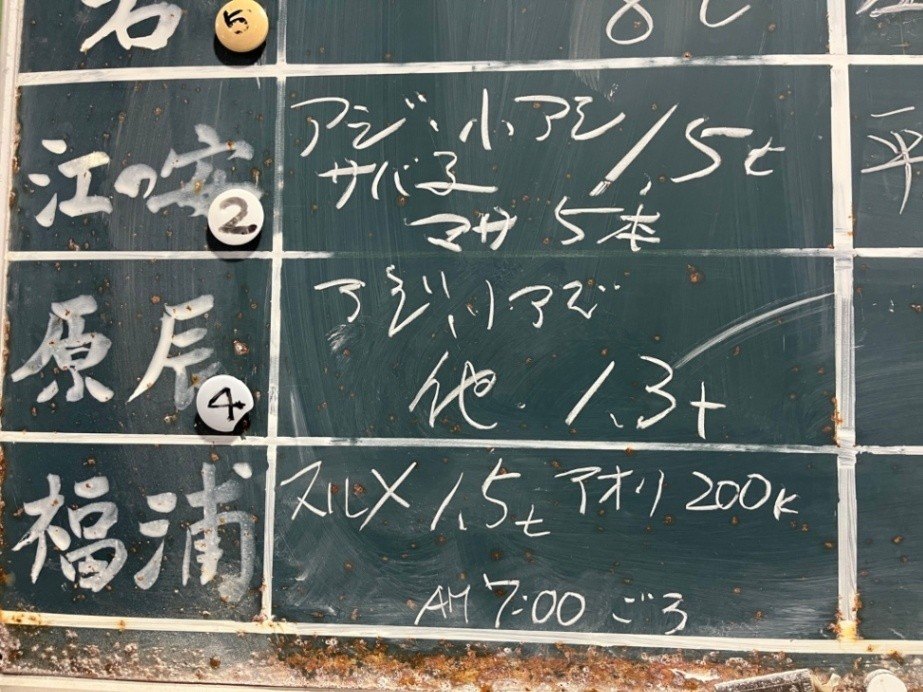 岩 5 8t
江の安 2 アジ、小アジ 1.5t
サバ子
マサ 5本
平
原辰 4 アジ、小アジ
他. 1.3t
福浦 スルメ 1.5t アオリ 200K
AM 7:00 ごろ